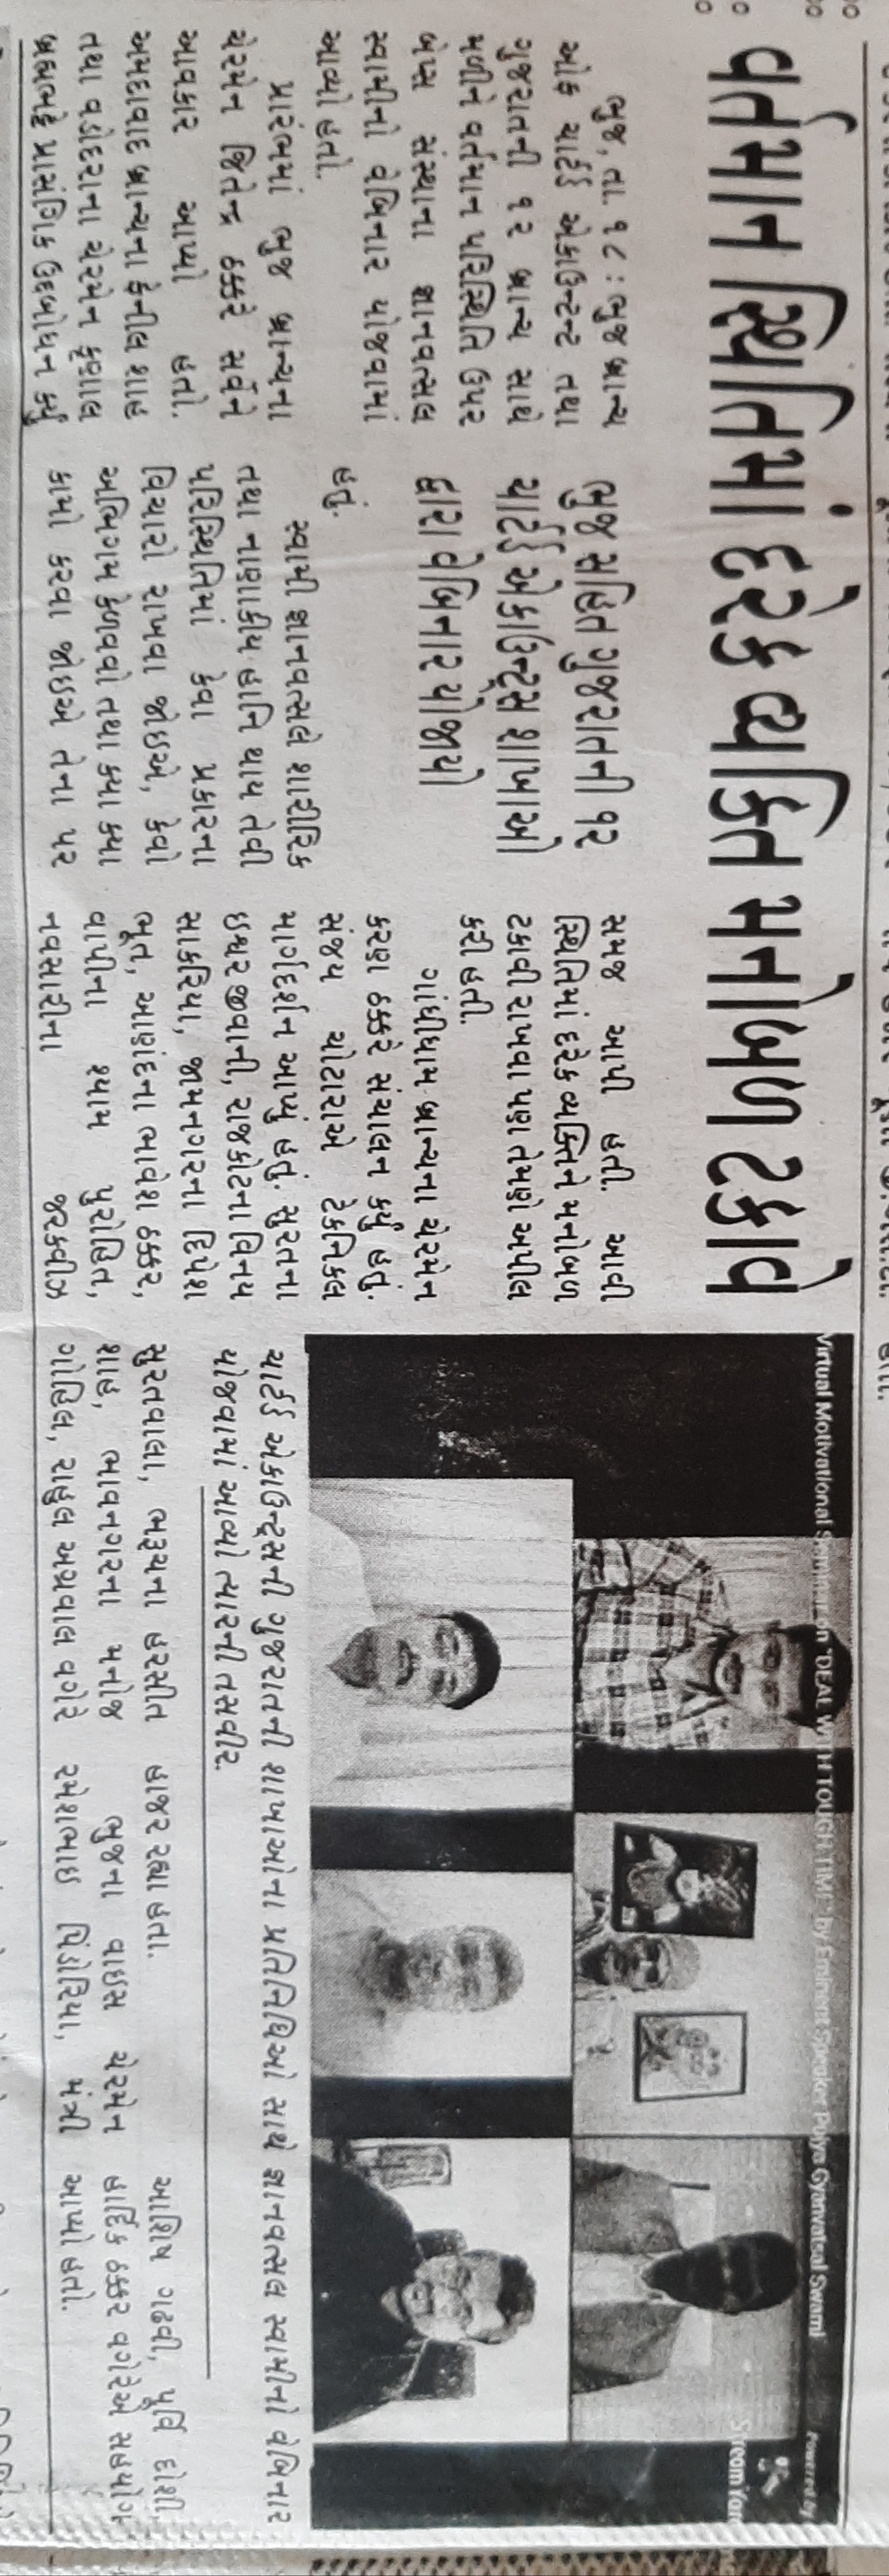 વર્તમાન સ્થિતિમાં દરેક વ્યક્તિ મનોબળ ટકાવે
ભુજ, તા. ૧૮ : ભુજ બ્રાન્ચ
ઓફ ચાર્ટર્ડ એકાઉન્ટન્ટ તથા
ગુજરાતની ૧૨ બ્રાન્ચ સાથે
મળીને વર્તમાન પરિસ્થિતિ ઉપર
બેપ્સ સંસ્થાના જ્ઞાનવત્સલ
સ્વામીનો વેબિનાર યોજવામાં
આવ્યો હતો.
પ્રારંભમાં ભુજ બ્રાન્ચના
ચેરમેન જિતેન્દ્ર ઠક્કરે સર્વેને
આવકાર આપ્યો હતો.
અમદાવાદ બ્રાન્ચના ફેનીલ શાહ
તથા વડોદરાના ચેરમેન કૃણાલ
બ્રહ્મભટ્ટે પ્રાસંગિક ઉદ્બોધન કર્યું
ભુજ સહિત ગુજરાતની ૧૨
ચાર્ટર્ડ એકાઉન્ટ્સ શાખાઓ
દ્વારા વેબિનાર યોજાયો
હતું.
સ્વામી જ્ઞાનવત્સલે શારીરિક
તથા નાણાકીય હાનિ થાય તેવી
પરિસ્થિતિમાં કેવા પ્રકારના
વિચારો રાખવા જોઇએ, કેવો
અભિગમ કેળવવો તથા ક્યા ક્યા
કામો કરવા જોઇએ તેના પર
સમજ આપી હતી. આવી
સ્થિતિમાં દરેક વ્યક્તિને મનોબળ
ટકાવી રાખવા પણ તેમણે અપીલ
કરી હતી.
ગાંધીધામ બ્રાન્ચના ચેરમેન
કરણ ઠક્કરે સંચાલન કર્યું હતું.
સંજય ચોટારાએ ટેકનિકલ
માર્ગદર્શન આપ્યું હતું. સુરતના
ઇશ્વર જીવાની, રાજકોટના વિનય
સાકરિયા, જામનગરના દિપેશ
ભૂત, આણંદના ભાવેશ ઠક્કર,
વાપીના શ્યામ પુરોહિત,
નવસારીના જરક્વીઝ
Virtual Motivational on "DEAL WITH TOUGH TIME" by Eminent Speaker Pujya Gyanvatsal Swami
Powered by
ચાર્ટર્ડ એકાઉન્ટ્સની ગુજરાતની શાખાઓના પ્રતિનિધિઓ સાથે જ્ઞાનવત્સલ સ્વામીનો વેબિનાર
યોજવામાં આવ્યો ત્યારની તસવીર.
સુરતવાલા, ભરૂચના હરસીત
શાહ, ભાવનગરના મનોજ
ગોહિલ, રાહુલ અગ્રવાલ વગેરે
હાજર રહ્યા હતા.
ભુજના વાઇસ ચેરમેન
રમેશભાઇ પિંડોરિયા, મંત્રી
આશિષ ગઢવી, પૂર્વિ દોશી,
હાર્દિક ઠક્કર વગેરેએ સહયોગ
આપ્યો હતો.